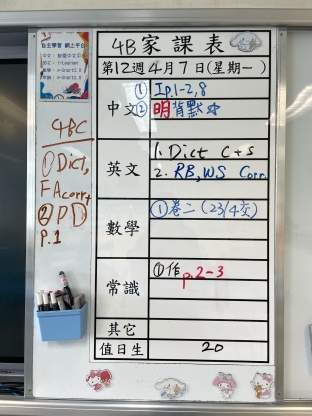 自主學習 網上平台
4B家課表
第12週4月7日(星期一)
中文
① Ip.1-2,8
② 明背默☆
英文
1. Dict C+S
2. RB, WS Corr.
數學
① 卷二 (23/4交)
常識
①作 p.2-3
其它
值日生
20
4BC
① Dict,
FA corr+
② PD
P.1